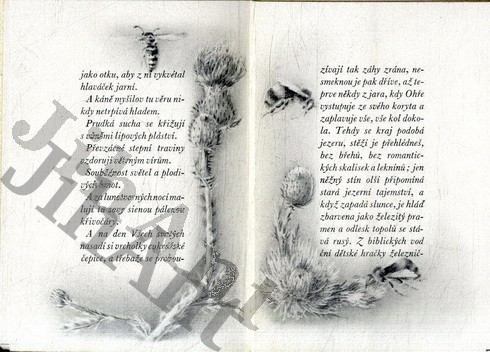 jako otku, aby z ní vykvétal
hlaváček jarní.
A káně myšilov tu věru ni-
kdy netrpívá hladem.
Prudká sucha se křižují
s vůněmi lipových pláství.
Převzácné stepní traviny
vzdorují větrným vírům.
Souběžnost světel a plodi-
vých hmot.
A za lunojevných nocí ma-
lují tu sovy sienou pálenou
křivočáry.
A na den Všech svatých
nasadí si vrcholky cukrářské
čepice, a třebaže se probou-
zívají tak záhy zrána, ne-
smeknou je pak dříve, až te-
prve někdy z jara, kdy Ohře
vystupuje ze svého koryta a
zaplavuje vše, vše kol doko-
la. Tehdy se kraj podobá
jezeru, stěží je přehlédneš,
bez břehů, bez romantic-
kých skalisek a leknínů; jen
něžný stín olší připomíná
stará jezerní tajemství, a
když zapadá slunce, je hláď
zbarvena jako železitý pra-
men a odlesk topolů se stá-
vá rusý. Z biblických vod
ční dětské hračky železnič-
JiriArt